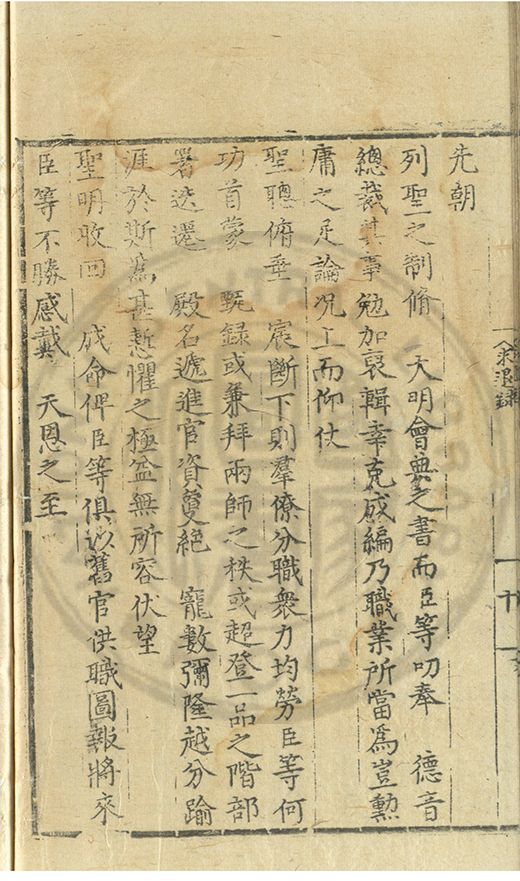 先朝
列聖之制脩　大明會典之書而臣等叨奉　德音
總裁其事勉加裒輯幸克成編乃職業所當爲豈勲
庸之足論况上而仰仗
聖聰俯垂　宸斷下則羣僚分職衆力均勞臣等何
功首蒙　甄録或兼拜兩師之秩或超登一品之階部
署迭遷　殿名遞進官資敻絕　寵數彌隆越分踰
涯於斯爲甚慙懼之極益無所容伏望
聖明收回　成命俾臣等俱以舊官供職圖報將來
臣等不勝感戴　天恩之至